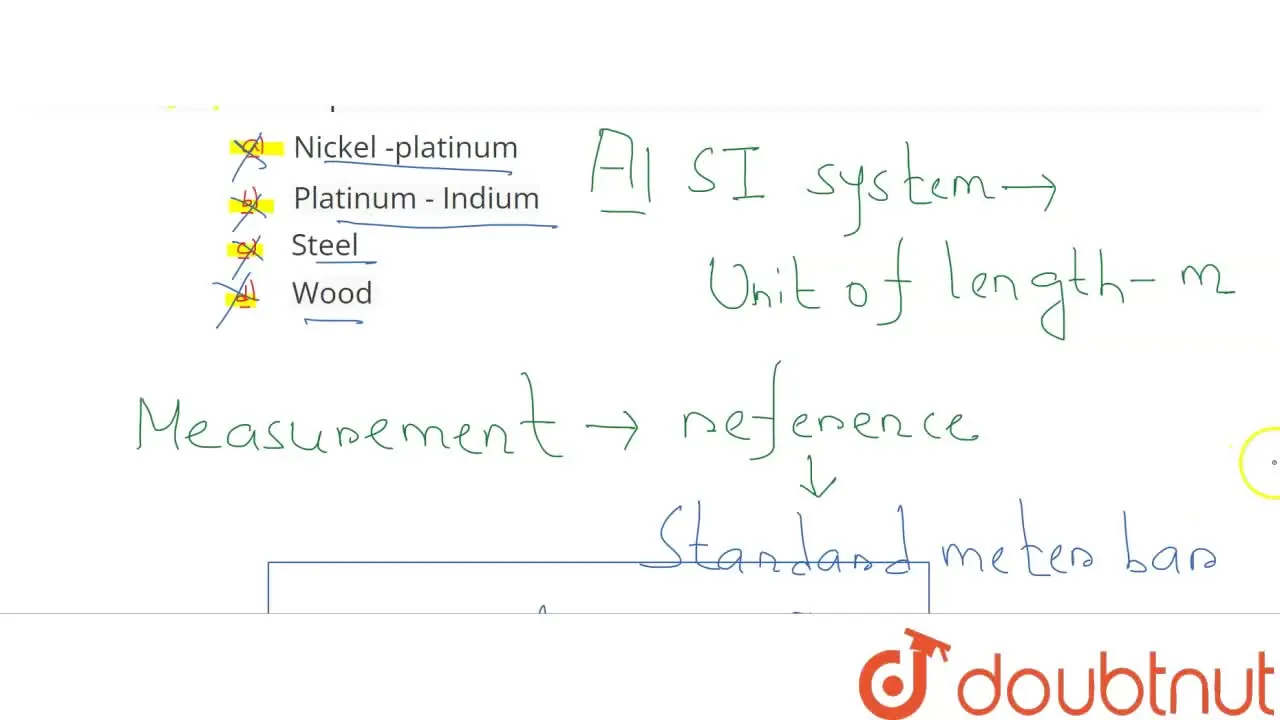 a) Nickel -platinum
b) Platinum - Indium
c) Steel
d) Wood
A| SI system →
Unit of length - m
Measurement → reference
↓
Standard meter bar
doubtnut